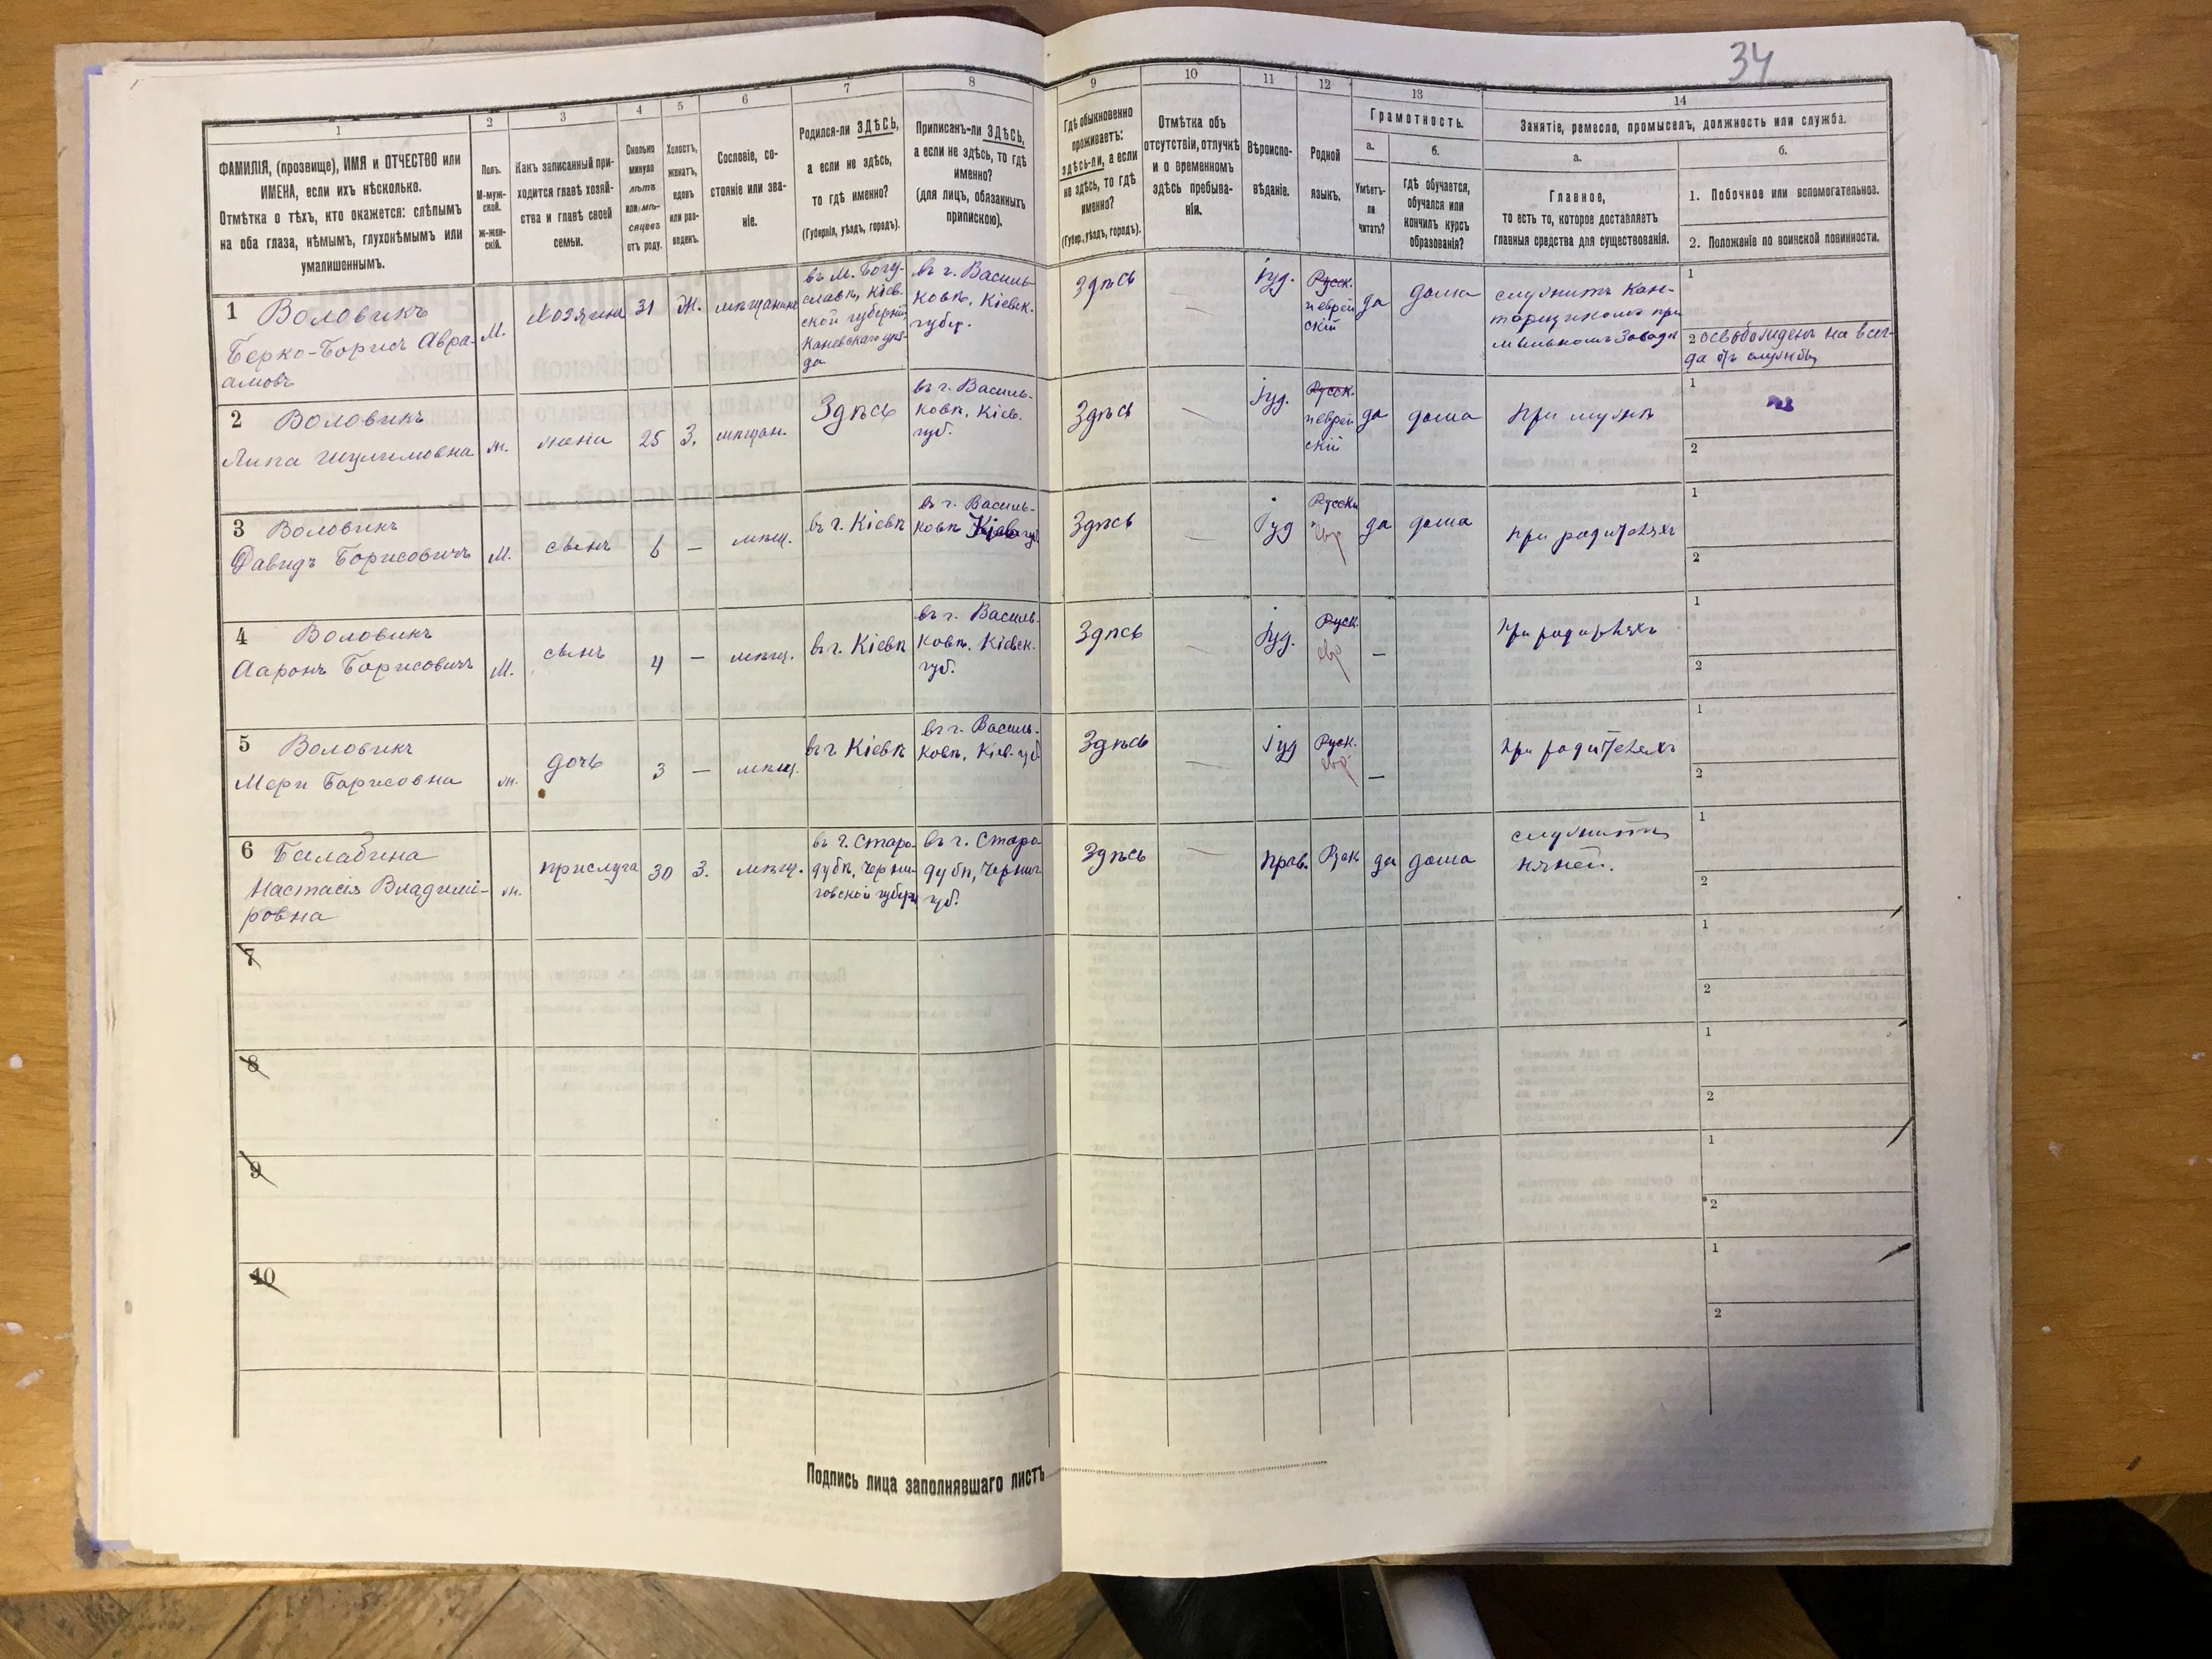 34
1
2
3
4
5
6
7
8
9
10
11
12
13
14
ФАМИЛІЯ, (прозвище), ИМЯ и ОТЧЕСТВО или
ИМЕНА, если ихъ нѣсколько.
Отмѣтка о тѣхъ, кто окажется: слѣпымъ
на оба глаза, нѣмымъ, глухонѣмымъ или
умалишеннымъ.
Полъ.
М-муж-
ской.
ж-жен-
скій.
Какъ записанный при-
ходится главѣ хозяй-
ства и главѣ своей
семьи.
Сколько
минуло
лѣтъ
или мѣ-
сяцевъ
отъ роду.
Холостъ,
женатъ,
вдовъ
или раз-
веденъ.
Сословіе, со-
стояніе или зва-
ніе.
Родился-ли ЗДѢСЬ,
а если не здѣсь,
то гдѣ именно?
(Губернія, уѣздъ, городъ).
Приписанъ-ли ЗДѢСЬ,
а если не здѣсь, то гдѣ
именно?
(для лицъ, обязанныхъ
припискою).
Гдѣ обыкновенно
проживаетъ:
здѣсь-ли, а если
не здѣсь, то гдѣ
именно?
(Губер., уѣздъ, городъ).
Отмѣтка объ
отсутствіи, отлучкѣ
и о временномъ
здѣсь пребыва-
ніи.
Вѣроиспо-
вѣданіе.
Родной
языкъ.
Грамотность.
а.
Умѣетъ-
ли
читать?
б.
Гдѣ обучается,
обучался или
кончилъ курсъ
образованія?
Занятіе, ремесло, промыселъ, должность или служба.
а.
Главное,
то есть то, которое доставляетъ
главныя средства для существованія.
б.
1. Побочное или вспомогательное.
2. Положеніе по воинской повинности.
1 Воловикъ
Берко-Борисъ Авра-
амовъ
М.
Хозяинъ
31
Ж.
мѣщанинъ
въ м. Богу-
славѣ, Кіев-
ской губерніи
Каневскаго уѣз-
да
въ г. Василь-
ковѣ, Кіевск.
губер.
Здѣсь
—
іуд.
Русск.
и еврей
скій
да
дома
служитъ кон-
торщикомъ при
мыльномъ заводѣ
1
2 освобожденъ на всег-
да отъ службы
2 Воловикъ
Липа Шулимовна
ж.
жена
25
З.
мѣщан.
Здѣсь
въ г. Василь-
ковѣ, Кіев.
губ.
Здѣсь
—
іуд.
Русск.
и еврей
скій
да
дома
При мужѣ
1
2
3 Воловикъ
Давидъ Борисовичъ
М.
сынъ
6
—
мѣщ.
въ г. Кіевѣ
въ г. Василь-
ковѣ Кіев губ.
Здѣсь
—
іуд
Русск.
и
евр
да
дома
при родителяхъ
1
2
4 Воловикъ
Ааронъ Борисовичъ
М.
сынъ
4
—
мѣщ.
въ г. Кіевѣ
въ г. Василь-
ковѣ, Кіевск.
губ.
Здѣсь
—
іуд.
Руск.
евр
—
при родителяхъ
1
2
5 Воловикъ
Мери Борисовна
ж.
дочь
3
—
мѣщ.
въ г. Кіевѣ
въ г. Василь-
ковѣ, Кіев. губ
Здѣсь
—
іуд
Руск.
евр
—
при родителяхъ
1
2
6 Балабина
Настасія Владимі-
ровна
ж.
прислуга
30
З.
мѣщ.
въ г. Старо-
дубѣ, Черни-
говской губерн
въ г. Старо-
дубѣ, Черниг
губ.
Здѣсь
—
прав.
Руск
да
дома
служитъ
няней.
1
2
7
1
2
8
1
2
9
1
2
10
1
2
Подпись лица заполнявшаго листъ